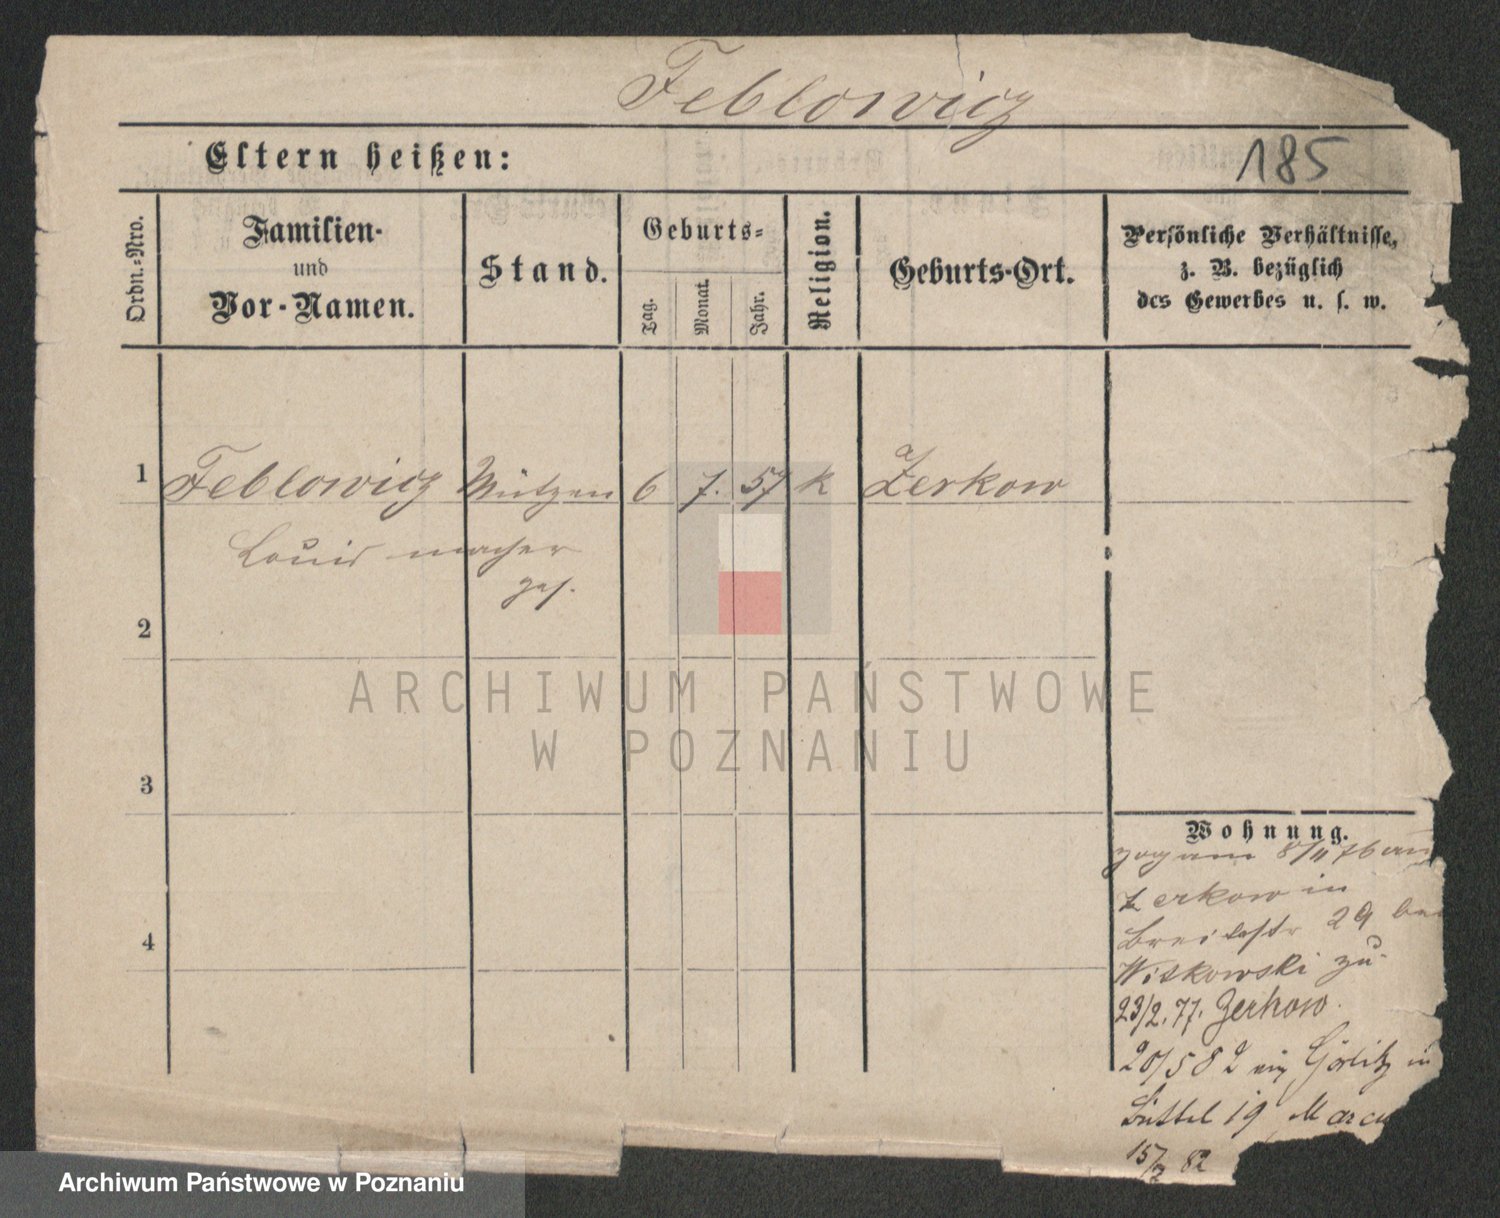 Feblowicz
Eltern heißen:
185
Ordn.-Nro.
Familien-
und
Vor-Namen.
Stand.
Geburts-
Tag.
Monat.
Jahr.
Religion.
Geburts-Ort.
Persönliche Verhältnisse,
z. B. bezüglich
des Gewerbes u. s. w.
1 Feblowicz Mützen 6 7. 57 k Zerkow
Louis macher
ges.
2
ARCHIWUM PAŃSTWOWE
W POZNANIU
3
Wohnung.
zog am 8/11 76 aus
Zerkow in
Breitestr 29 bei
Witkowski zu
4
23/2. 77. Zerkow.
20/5 82 Görlitz in
Büttel 19 Marcu
15/7 82
Archiwum Państwowe w Poznaniu